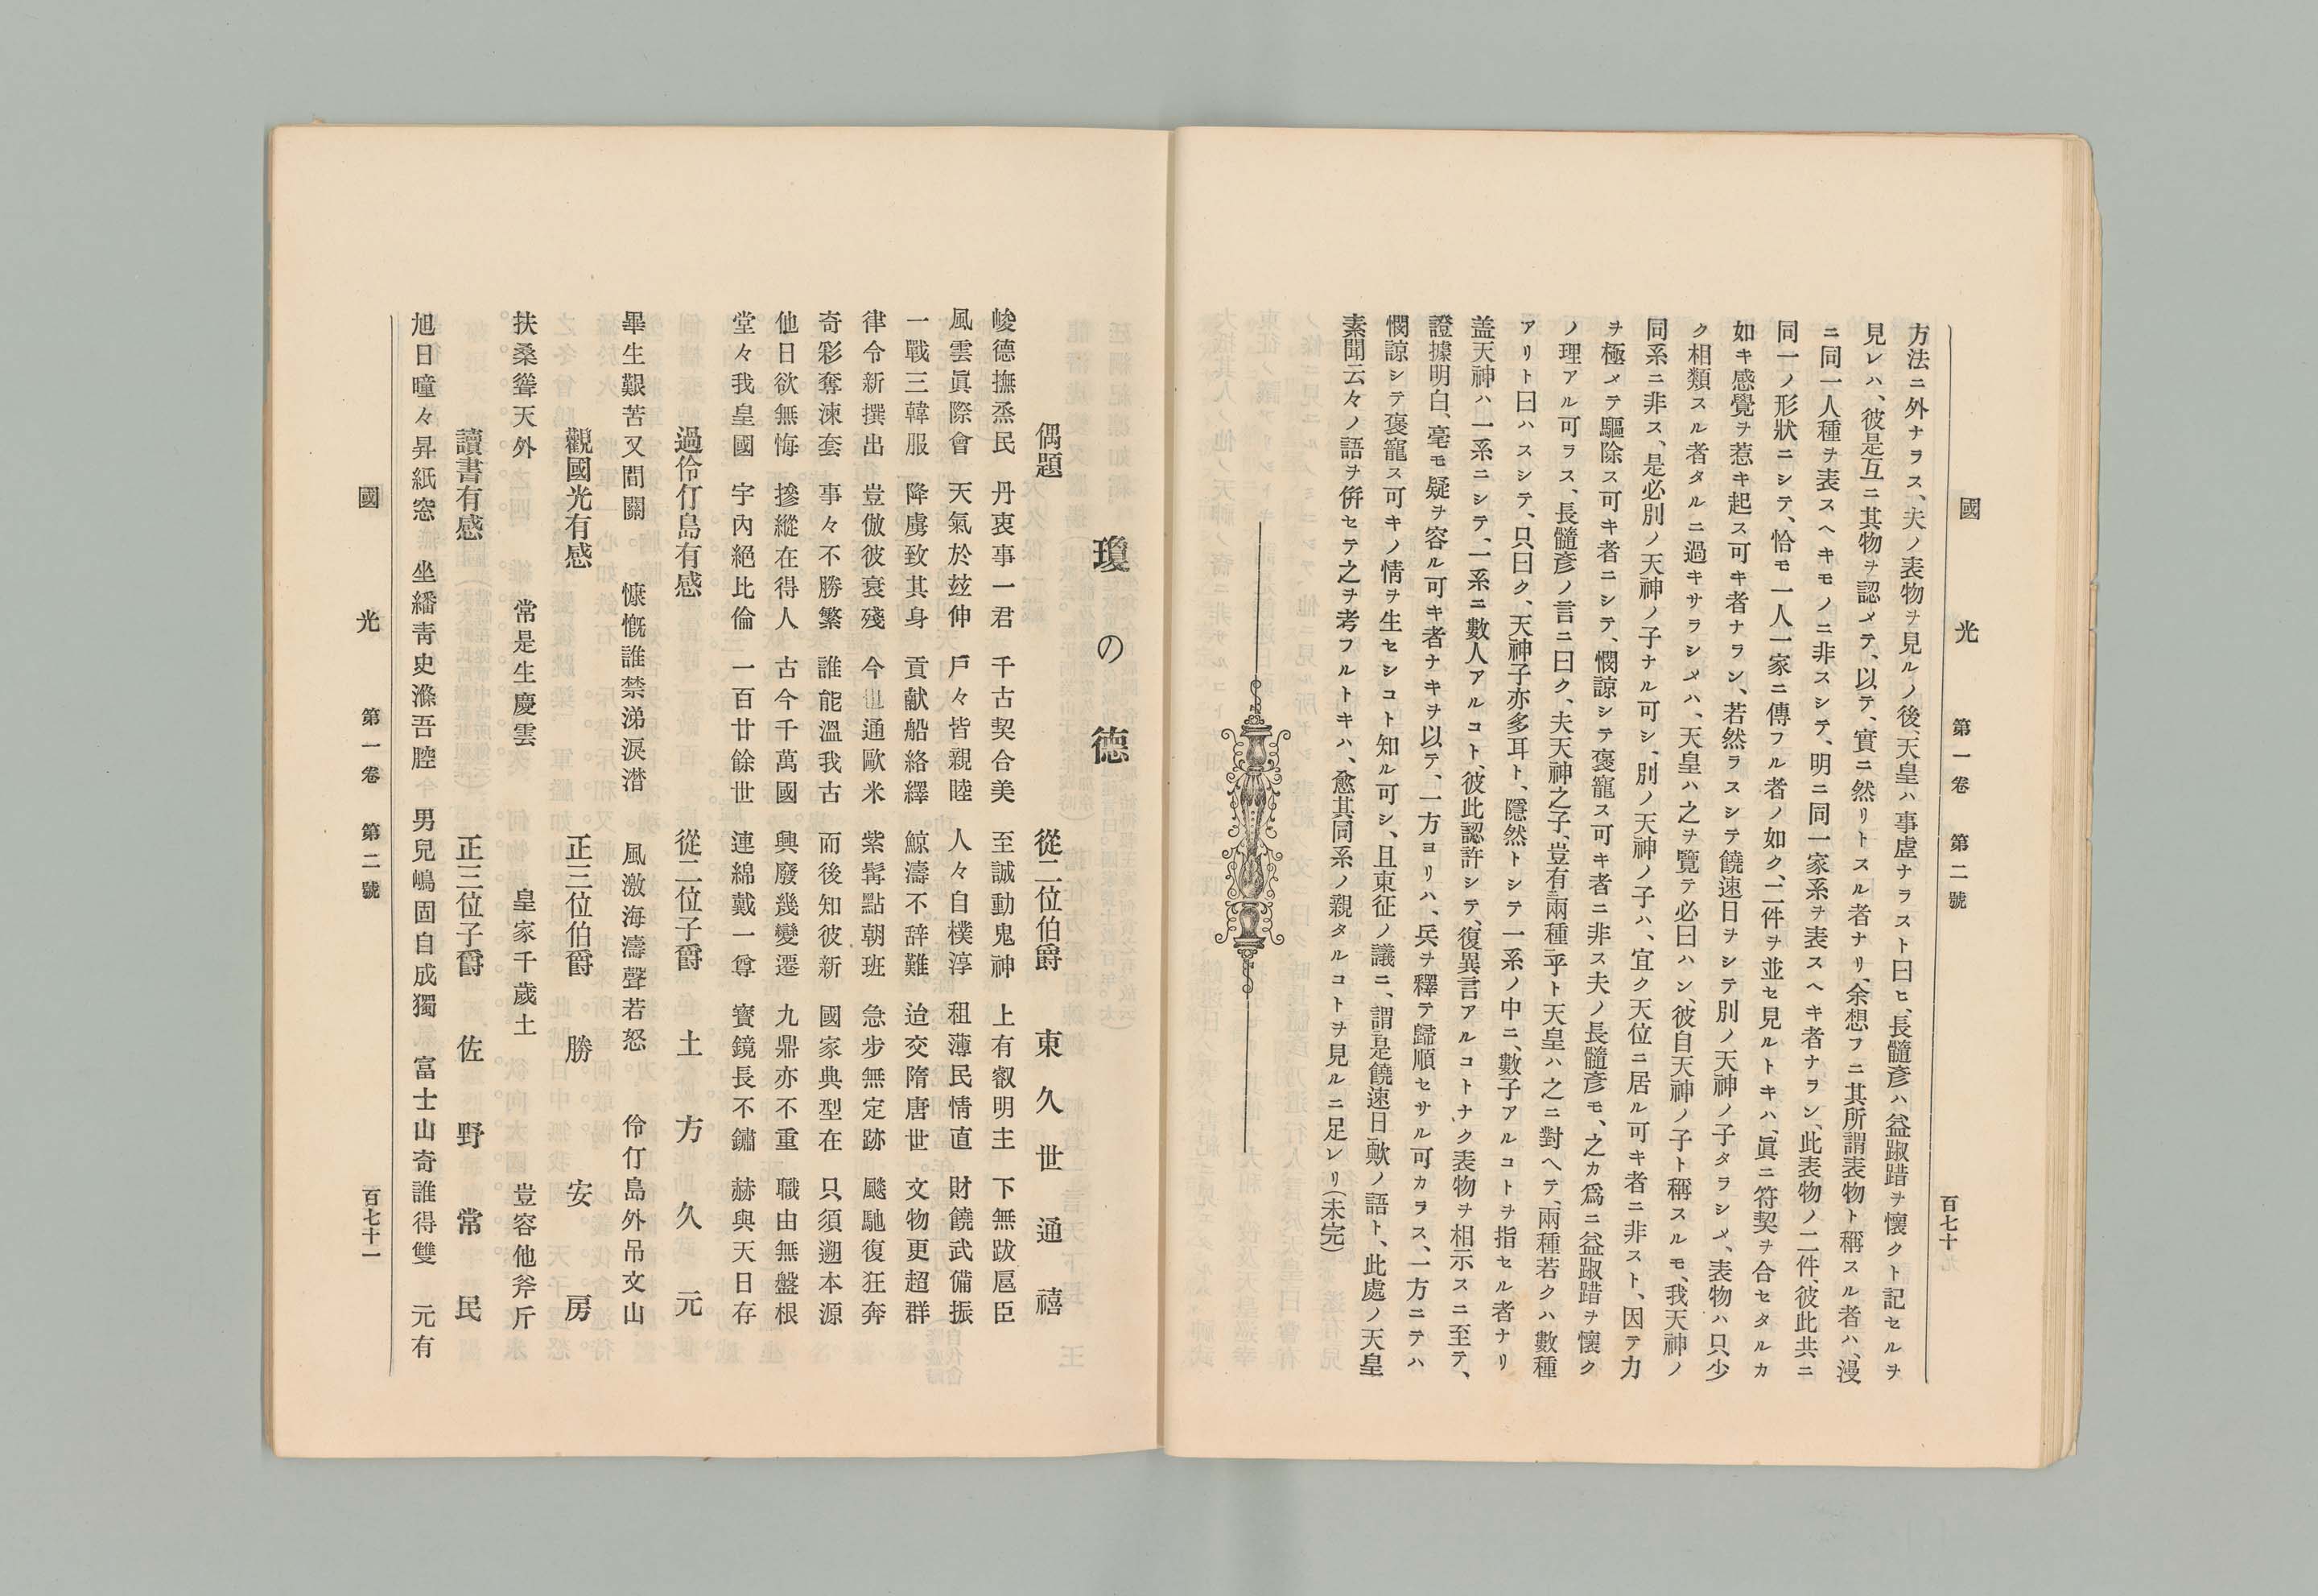 國光 第一卷 第二號 百七十
方法ニ外ナラス、夫ノ表物ヲ見ルノ後、天皇ハ事虛ナラスト曰ヒ、長髓彥ハ益踧踖ヲ懷クト記セルヲ
見レハ、彼是互ニ其物ヲ認メテ、以テ、實ニ然リトスル者ナリ、余想フニ其所謂表物ト稱スル者ハ、漫
ニ同一人種ヲ表スヘキモノニ非スシテ、明ニ同一家系ヲ表スヘキ者ナラン、此表物ノ二件、彼此共ニ
同一ノ形狀ニシテ、恰モ一人一家ニ傳フル者ノ如ク、二件ヲ並セ見ルトキハ、眞ニ符契ヲ合セタルカ
如キ感覺ヲ惹キ起ス可キ者ナラン、若然ラスシテ饒速日ヲシテ別ノ天神ノ子タラシメ、表物ハ只少
ク相類スル者タルニ過キサラシメハ、天皇ハ之ヲ覽テ必曰ハン、彼自天神ノ子ト稱スルモ、我天神ノ
同系ニ非ス、是必別ノ天神ノ子ナル可シ、別ノ天神ノ子ハ、宜ク天位ニ居ル可キ者ニ非スト、因テ力
ヲ極メテ驅除ス可キ者ニシテ、憫諒シテ褒寵ス可キ者ニ非ス夫ノ長髓彥モ、之カ爲ニ益踧踖ヲ懷ク
ノ理アル可ラス、長髓彥ノ言ニ曰ク、夫天神之子、豈有兩種乎ト天皇ハ之ニ對ヘテ、兩種若クハ數種
アリト曰ハスシテ、只曰ク、天神子亦多耳ト、隱然トシテ一系ノ中ニ、數子アルコトヲ指セル者ナリ
盖天神ハ一系ニシテ、一系ニ數人アルコト、彼此認許シテ、復異言アルコトナク表物ヲ相示スニ至テ、
證據明白、毫モ疑ヲ容ル可キ者ナキヲ以テ、一方ヨリハ、兵ヲ釋テ歸順セサル可カラス、一方ニテハ
憫諒シテ褒寵ス可キノ情ヲ生セシコト知ル可シ、且東征ノ議ニ、謂是饒速日歟ノ語ト、此處ノ天皇
素聞云々ノ語ヲ倂セテ之ヲ考フルトキハ、愈其同系ノ親タルコトヲ見ルニ足レリ(未完)
瓊の德
偶題 從二位伯爵 東久世通禧
峻德撫烝民 丹衷事一君 千古契合美 至誠動鬼神 上有叡明主 下無跋扈臣
風雲眞際會 天氣於玆伸 戶々皆親睦 人々自樸淳 租薄民情直 財饒武備振
一戰三韓服 降虜致其身 貢献船絡繹 鯨濤不辞難 迨交隋唐世 文物更超群
律令新撰出 豈倣彼衰殘 今也通歐米 紫髯點朝班 急步無定跡 飈馳復狂奔
奇彩奪湅套 事々不勝繁 誰能溫我古 而後知彼新 國家典型在 只須遡本源
他日欲無悔 摻縱在得人 古今千萬國 興廢幾變遷 九鼎亦不重 職由無盤根
堂々我皇國 宇內絕比倫 一百廿餘世 連綿戴一尊 寳鏡長不鏽 赫與天日存
過伶仃島有感 從二位子爵 土方久元
畢生艱苦又間關 慷慨誰禁涕淚潸 風激海濤聲若怒 伶仃島外吊文山
觀國光有感 正三位伯爵 勝安房
扶桑聳天外 常是生慶雲 皇家千歲土 豈容他斧斤
讀書有感 正三位子爵 佐野常民
旭日曈々昇紙窓 坐繙靑史滌吾腔 男兒嶋固自成獨 富士山奇誰得雙 元有
國光 第一卷 第二號 百七十一